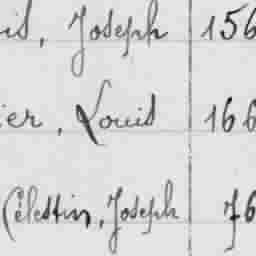 id, Joseph 156
ier, Louis 166
Célestin, Joseph 76